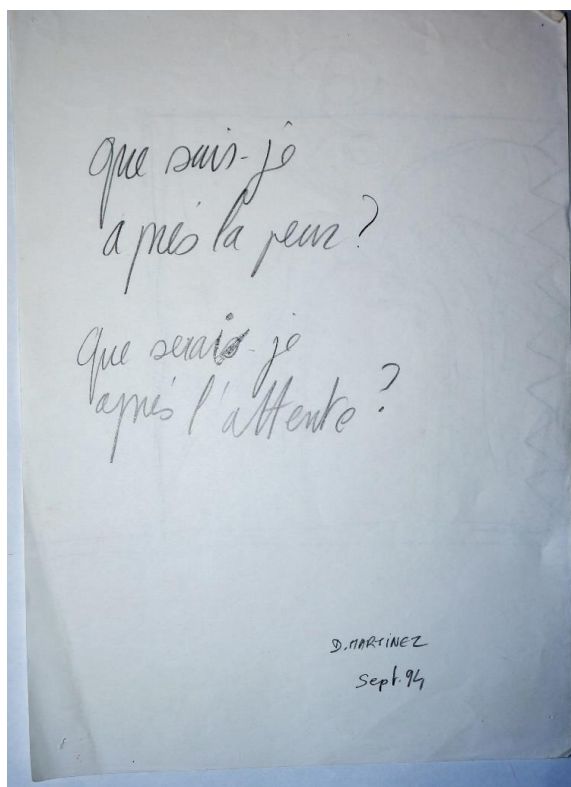 que suis-je
après la peur ?
que serais-je
après l'attente ?
D. MARTINEZ
Sept. 94